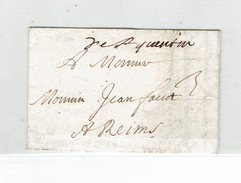 de St quentin
A Monsieur
Monsieur Jean
A Reims